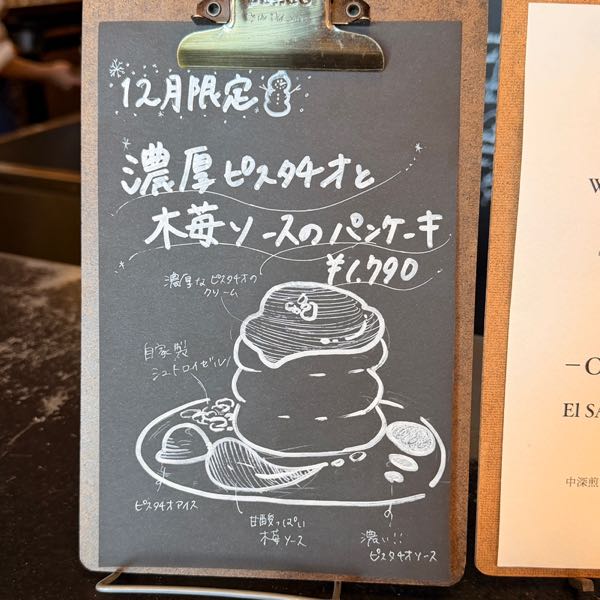 12月限定
濃厚ピスタチオと
木苺ソースのパンケーキ
¥1,790
濃厚なピスタチオの
クリーム
自家製
シュトロイゼル
ピスタチオアイス
甘酸っぱい
木苺ソース
濃い!!
ピスタチオソース
W
－C
El SA
中深煎